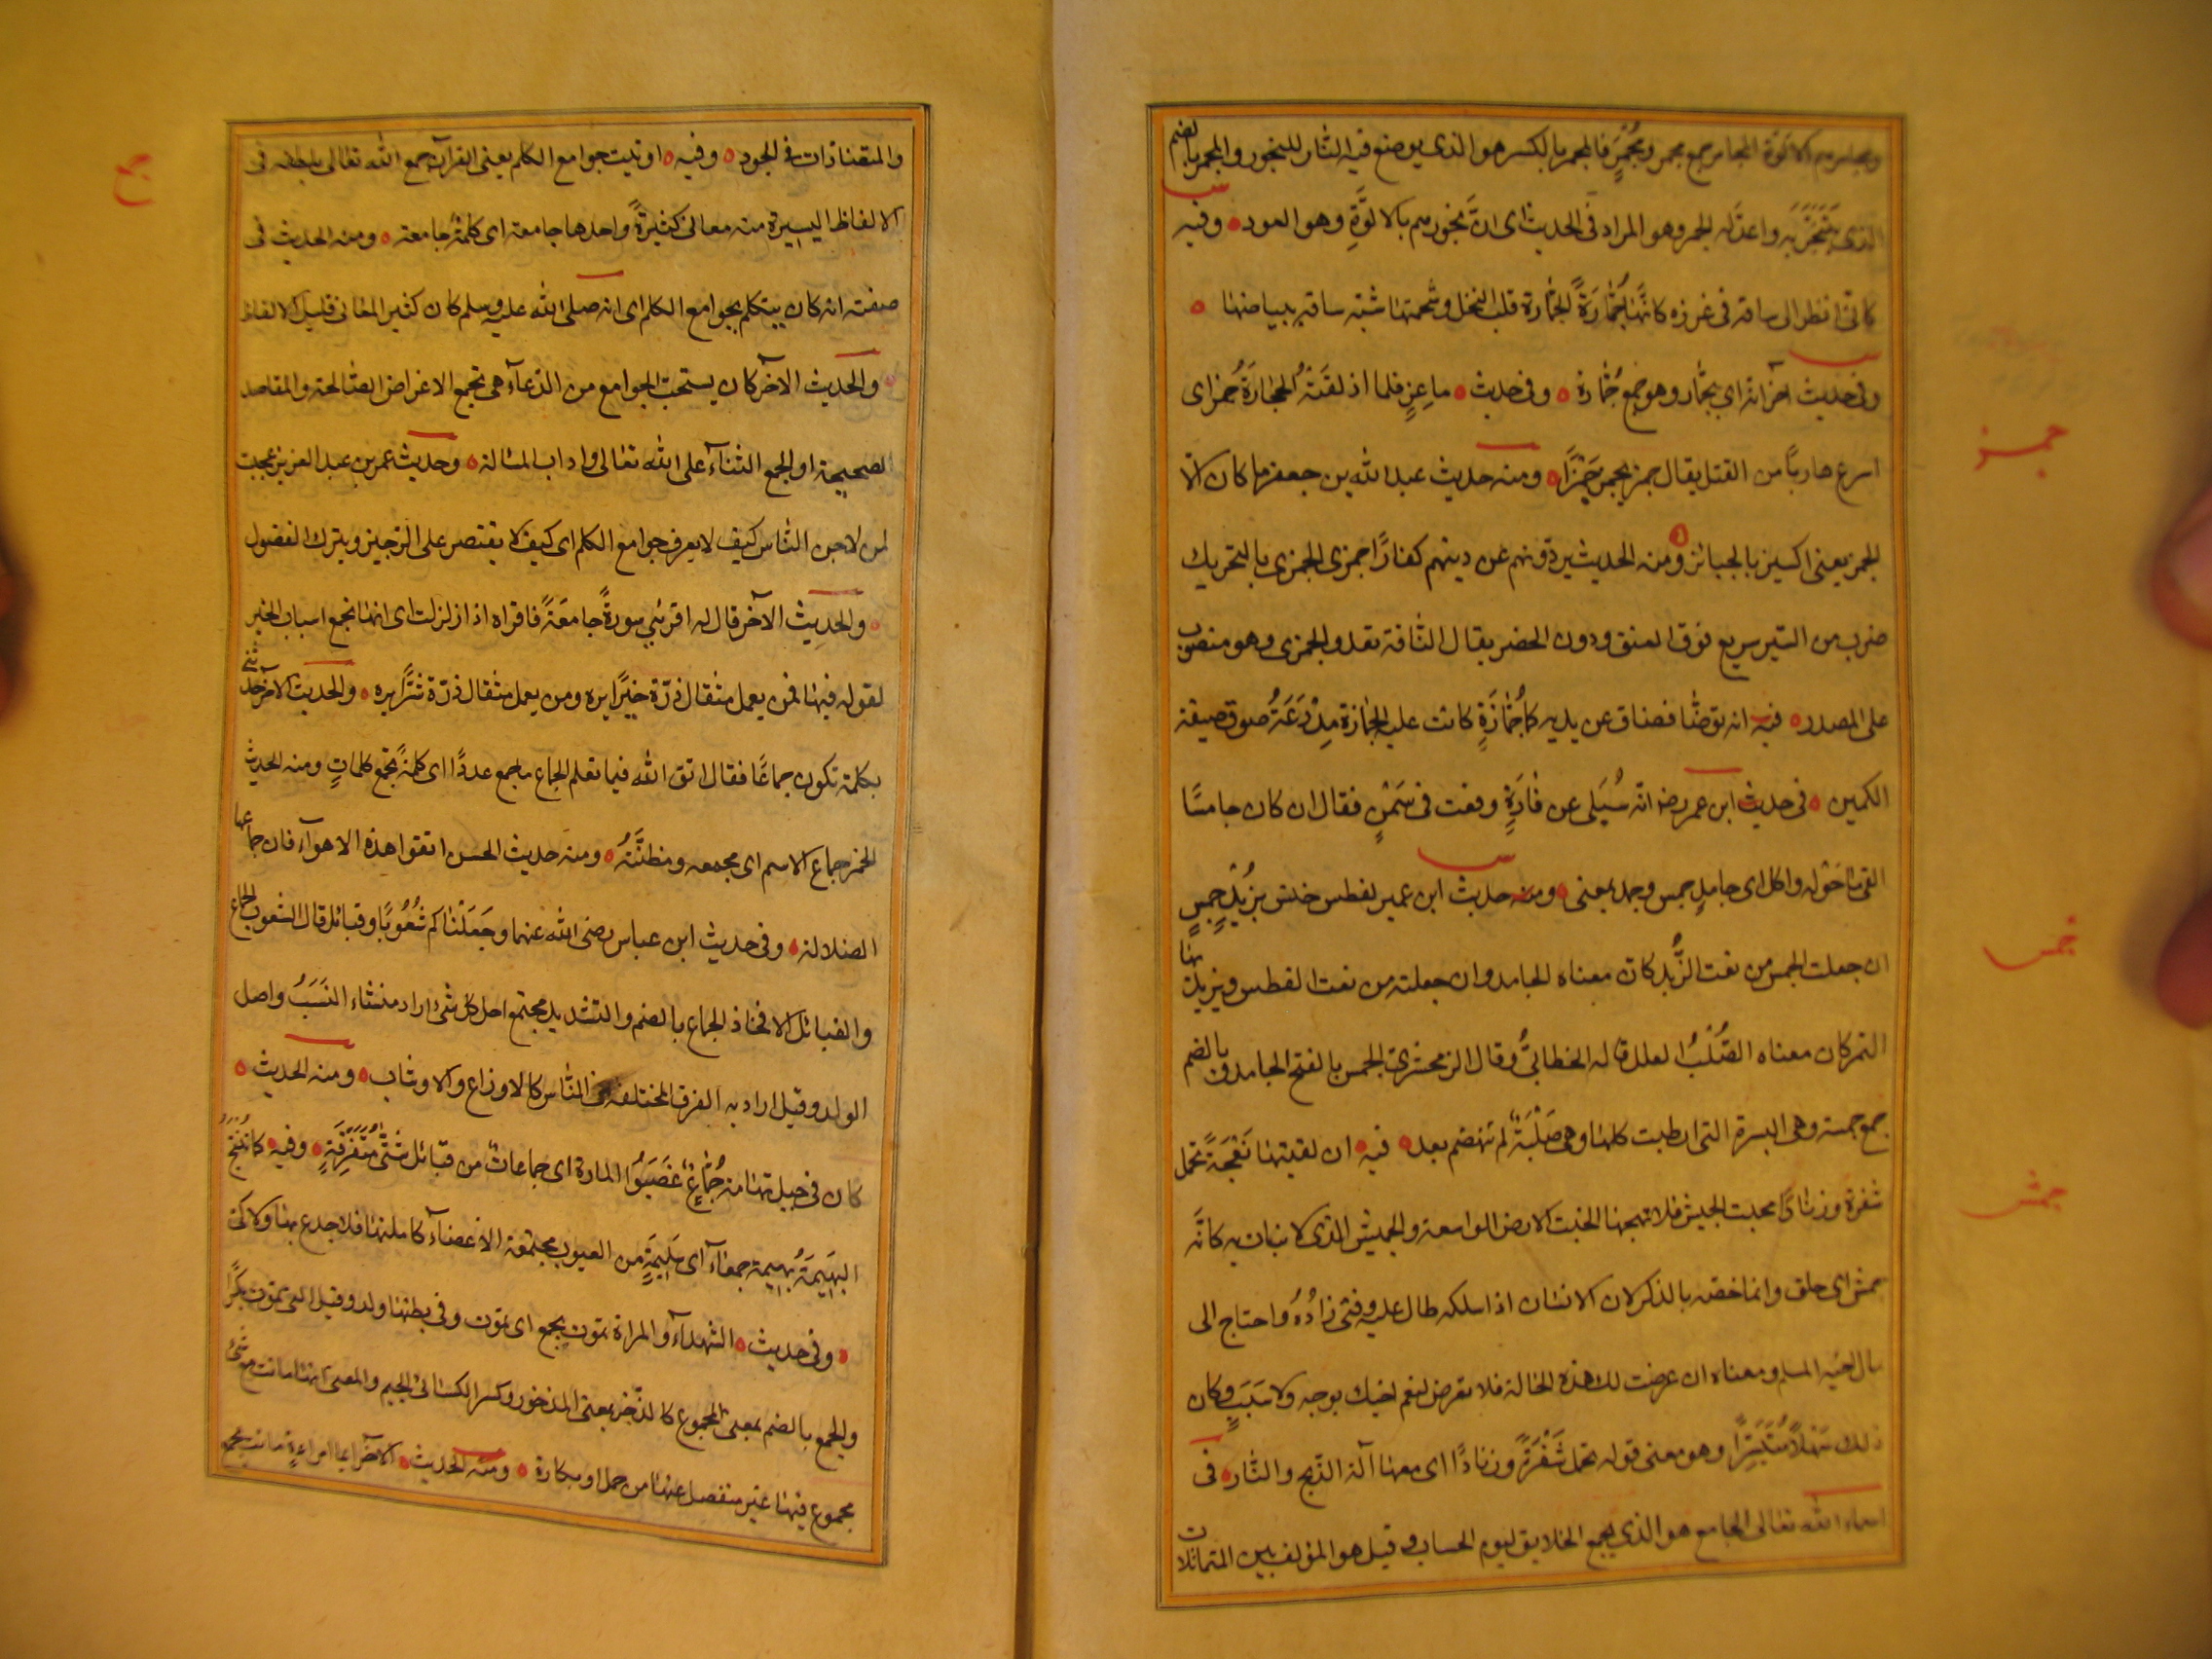 ومجامرهم الألوّة المجامر جمع مجمر ومُجمَرٍ فالمجمر بالكسر هو الذى يوضع فيه النّار للبخور والمجمر بالضم
الذى يتبخر به واعدّ له الجمر وهو المراد فى الحديث اى انّ بخورهم بالالوّةِ وهو العود وفيه
كانى انظر الى ساقه فى غرزه كانّها جُمّارَةٌ الجمّارة قلب النخل وشحمتها شبّه ساقه ببياضها
وفى حديث آخر انه اُتى بجمّار وهو جمع جُمّارة وفى حديث ماعِزٍ فلما اذلقَتْهُ الحجَارَةُ جمز اى
اسرع هارباً من القتل يقال جمز يجمز جَمْزًا ومنه حديث عبد الله بن جعفر ما كان الّا
الجمز يعنى السير بالجنائز ومنه الحديث يردّونهم عن دينهم كفارًا جمزى الجمزى بالتحريك
ضرب من السّير سريع فوق العنق ودون الحضر يقال النّاقة تعدو الجمزى وهو منصوب
على المصدر فيه انه توضّا فضاق عن يديه كما جُمّازَةٍ كانت عليه الجمّازة مِدْرَعَةُ صوف ضيقة
الكمين فى حديث ابن عمر رضه انّه سُئيل عن فارَةٍ وقعت فى سَمْنٍ فقال ان كان جامسًا
القى ما حَوْله واكل اى جامدٍ جمس وجمد بمعنى ومنه حديث ابن عمير لفطس خنس بزُبْدٍ جمسٍ
ان جعلت الجمس من نعت الزُّبد كان معناه الجامد وان جعلته من نعت الفطس ويزيد بها
التمر كان معناه الصُّلْبُ العلك قاله الخطابىُّ وقال الزمخشرى الجمس بالفتح الجامد وبالضم
جمع جمسة وهى البسرة التى ارطبت كلها وهى صَلْبَةٌ لم تنهضم بعد فيه ان لقيتها نَعْجَةً تحمل
شفرة وزنادًا بخبت الجميش فلا تهجها الخبت الارض الواسعة والجميش الذى لا نبات به كانّه
جمش اى حلق وانما خصّه بالذكر لان الانسان اذا سلكه طال عليه وفنى زادُهُ واحتاج الى
مال اخيه المسلم ومعناه ان عرضت لك هذه الحالة فلا تعرض لنعم اخيك بوجه ولا سَبَبٍ وكان
ذلك سَهْلاً مُتَيَسِّرًا وهو معنى قوله تحمل شَفْرَةً وزنادًا اى معها آلة الذّبح والنّار فى
اسماء الله تعالى الجامع هو الذى يجمع الخلايق ليوم الحساب وقيل هو المؤلف بين المتماثلات
جمز
جمس
جمش
والمتضادات فى الوجود وفيه اوتيت جوامع الكلم يعنى القرآن جمع الله تعالى بلطفه فى
الالفاظ اليسيرة منه معانى كثيرةً واحدها جامعة اى كلمةٌ جامعة ومنه الحديث فى
صفته انه كان يتكلم بجوامع الكلم اى انه صلى الله عليه وسلم كان كثير المعانى قليل الالفاظ
والحديث الآخر كان يستحب الجوامع من الدّعآء هى تجمع الاغراض الصّالحة والمقاصد
الصحيحة او الجمع الثنآء على الله تعالى واداب المسالة وحديث عمر بن عبد العزيز عجبت
لمن لاحن النّاس كيف لا يعرف جوامع الكلم اى كيف لا يقتصر على الوجيز ويترك الفضول
والحديث الآخر قال له اقرئنى سورةً جامعَةً فاقراه اذا زلزلت اى انها تجمع اسباب الخير
لقوله فيها فمن يعمل مثقال ذرّة خيرًا يره ومن يعمل مثقال ذرّة شرًّا يره والحديث الآخر حدّثنى
بكلمة تكون جماعًا فقال اتق الله فيما تعلم الجماع ما جمع عددًا اى كلمةً تجمع كلماتٍ ومنه الحديث
الخمر جماع الاسم اى مجمعه ومظنَّتهُ ومنه حديث الحسن اتقوا هذه الاهوآء فان جماعها
الضلالة وفى حديث ابن عباس رضى الله عنهما وجَعَلْناكم شُعُوبًا وقبائل قال الشعوب الجماع
والقبائل الافخاذ الجماع بالضم والتشديد مجتمع اصل كل شىء اراد منشاء النسَبُ واصل
الولد وقيل اراد به الفرق المختلفة من النّاس كالاوزاع والاوشاب ومنه الحديث
كان فى جبل تهامة جُمّاعٌ غَصَبُوا المارة اى جماعات من قبائل شتّى مُتَفَرِّقَةٍ وفيه كما تُنْتَجُ
البَهِيْمَةُ بهيمة جمعآء اى سَلِيمَةٍ من العيوب مجتمعة الاعضآء كاملتها فلا جدع بها ولا كىّ
وفى حديث الشهدآء والمراة تموت بجمع اى تموت وفى بطنها ولد وقيل التى تموت بكرًا
والجمع بالضم بمعنى المجموع كالذّخر بمعنى المذخور وكسر الكسائىُّ الجيم والمعنى انّها ماتت مع شئ
مجموع فيها غير منفصل عنها من حمل او بكارة ومنه الحديث الآخر ايما امراءةٍ ماتت بجمع
جمع